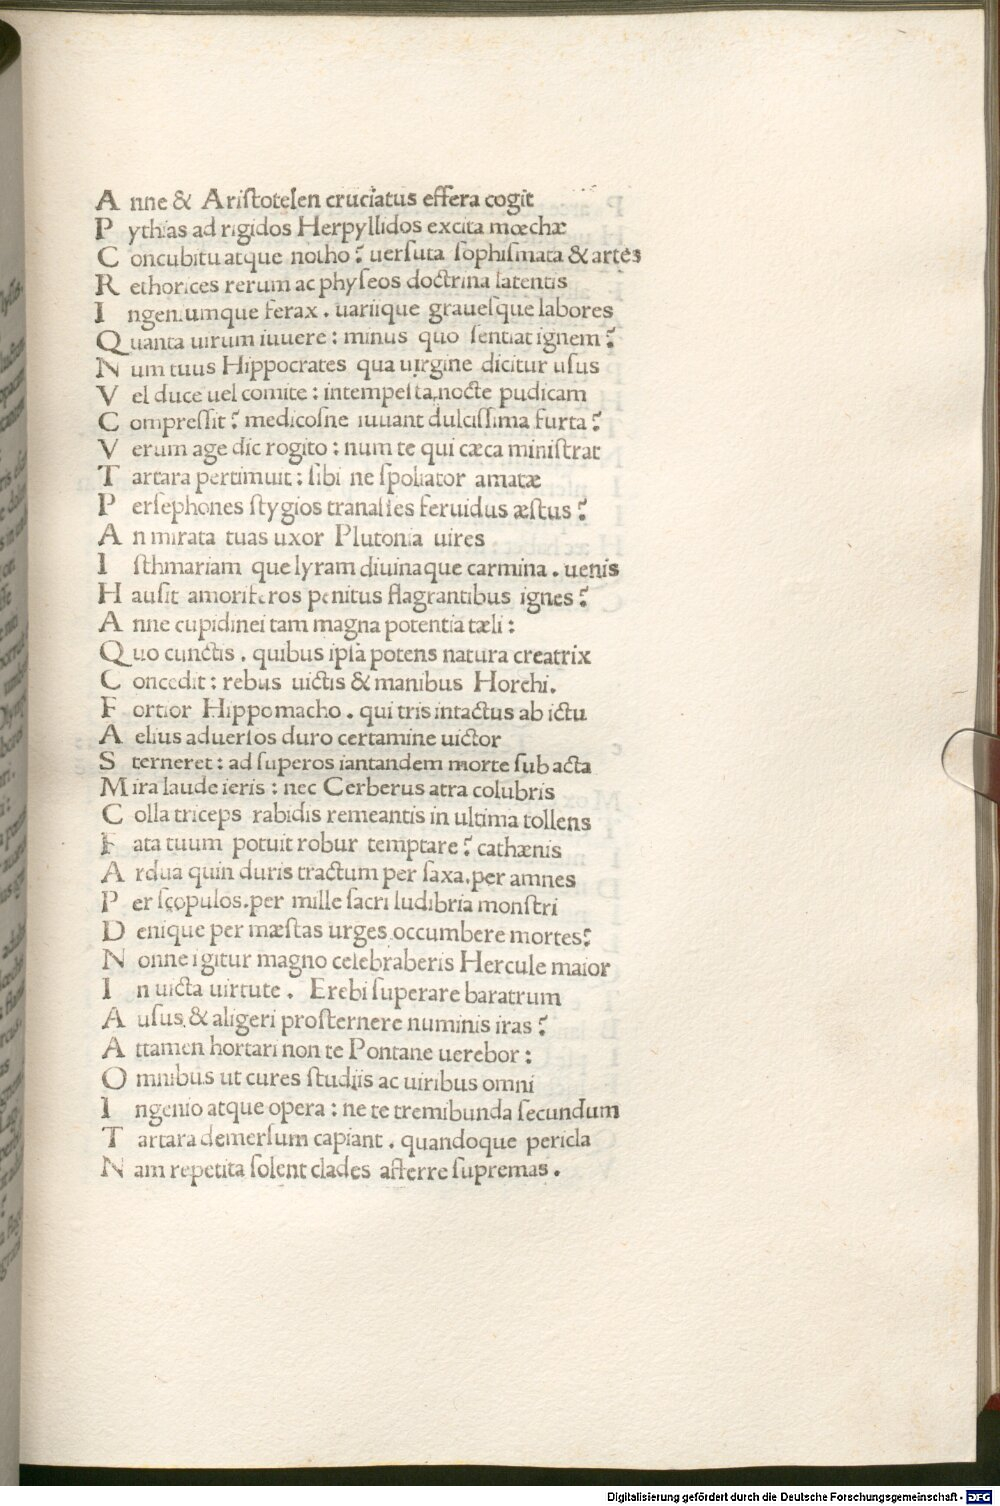 A nne & Ariſtotelen cruciatus effera cogit
P ythias ad rigidos Herpyllidos excita mœchæ
C oncubitu atque notho? uerſuta ſophiſmata & artes
R ethorices rerum ac phyſeos doctrina latentis
I ngeniumque ferax . uariique graueſque labores
Q uanta uirum iuuere : minus quo ſentiat ignem?
N um tuus Hippocrates qua uirgine dicitur uſus
V el duce uel comite : intempeſta nocte pudicam
C ompreſſit? medicoſne iuuant dulciſſima furta?
V erum age dic rogito : num te qui cæca miniſtrat
T artara pertimuit : ſibi ne ſpoliator amatæ
P erſephones ſtygios tranaſſes feruidus æſtus?
A n mirata tuas uxor Plutonia uires
I ſthmariam que lyram diuinaque carmina . uenis
H auſit amoriferos penitus flagrantibus ignes?
A nne cupidinei tam magna potentia tæli :
Q uo cunctis . quibus ipſa potens natura creatrix
C oncedit : rebus uictis & manibus Horchi.
F ortior Hippomacho . qui tris intactus ab ictu
A elius aduerſos duro certamine uictor
S terneret : ad ſuperos iantandem morte ſubacta
M ira laude ieris : nec Cerberus atra colubris
C olla triceps rabidis remeantis in ultima tollens
F ata tuum potuit robur temptare? cathænis
A rdua quin duris tractum per ſaxa.per amnes
P er ſcopulos.per mille ſacri ludibria monſtri
D enique per mæſtas urges occumbere mortes?
N onne igitur magno celebraberis Hercule maior
I n uicta uirtute . Erebi ſuperare baratrum
A uſus & aligeri proſternere numinis iras?
A ttamen hortari non te Pontane uerebor :
O mnibus ut cures ſtudiis ac uiribus omni
I ngenio atque opera : ne te tremibunda ſecundum
T artara demerſum capiant . quandoque pericla
N am repetita ſolent clades afferre ſupremas .
Digitalisierung gefördert durch die Deutsche Forschungsgemeinschaft - DFG